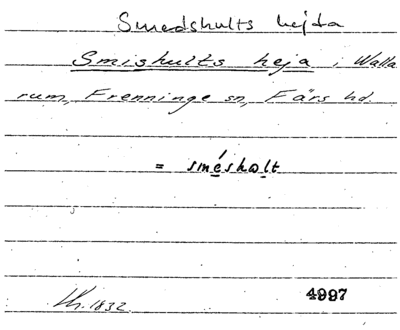 Smedshults hejda
Smishults heja i Walla
rum, Frenninge sn, Färs hd.
= smésholt
1832.
4997